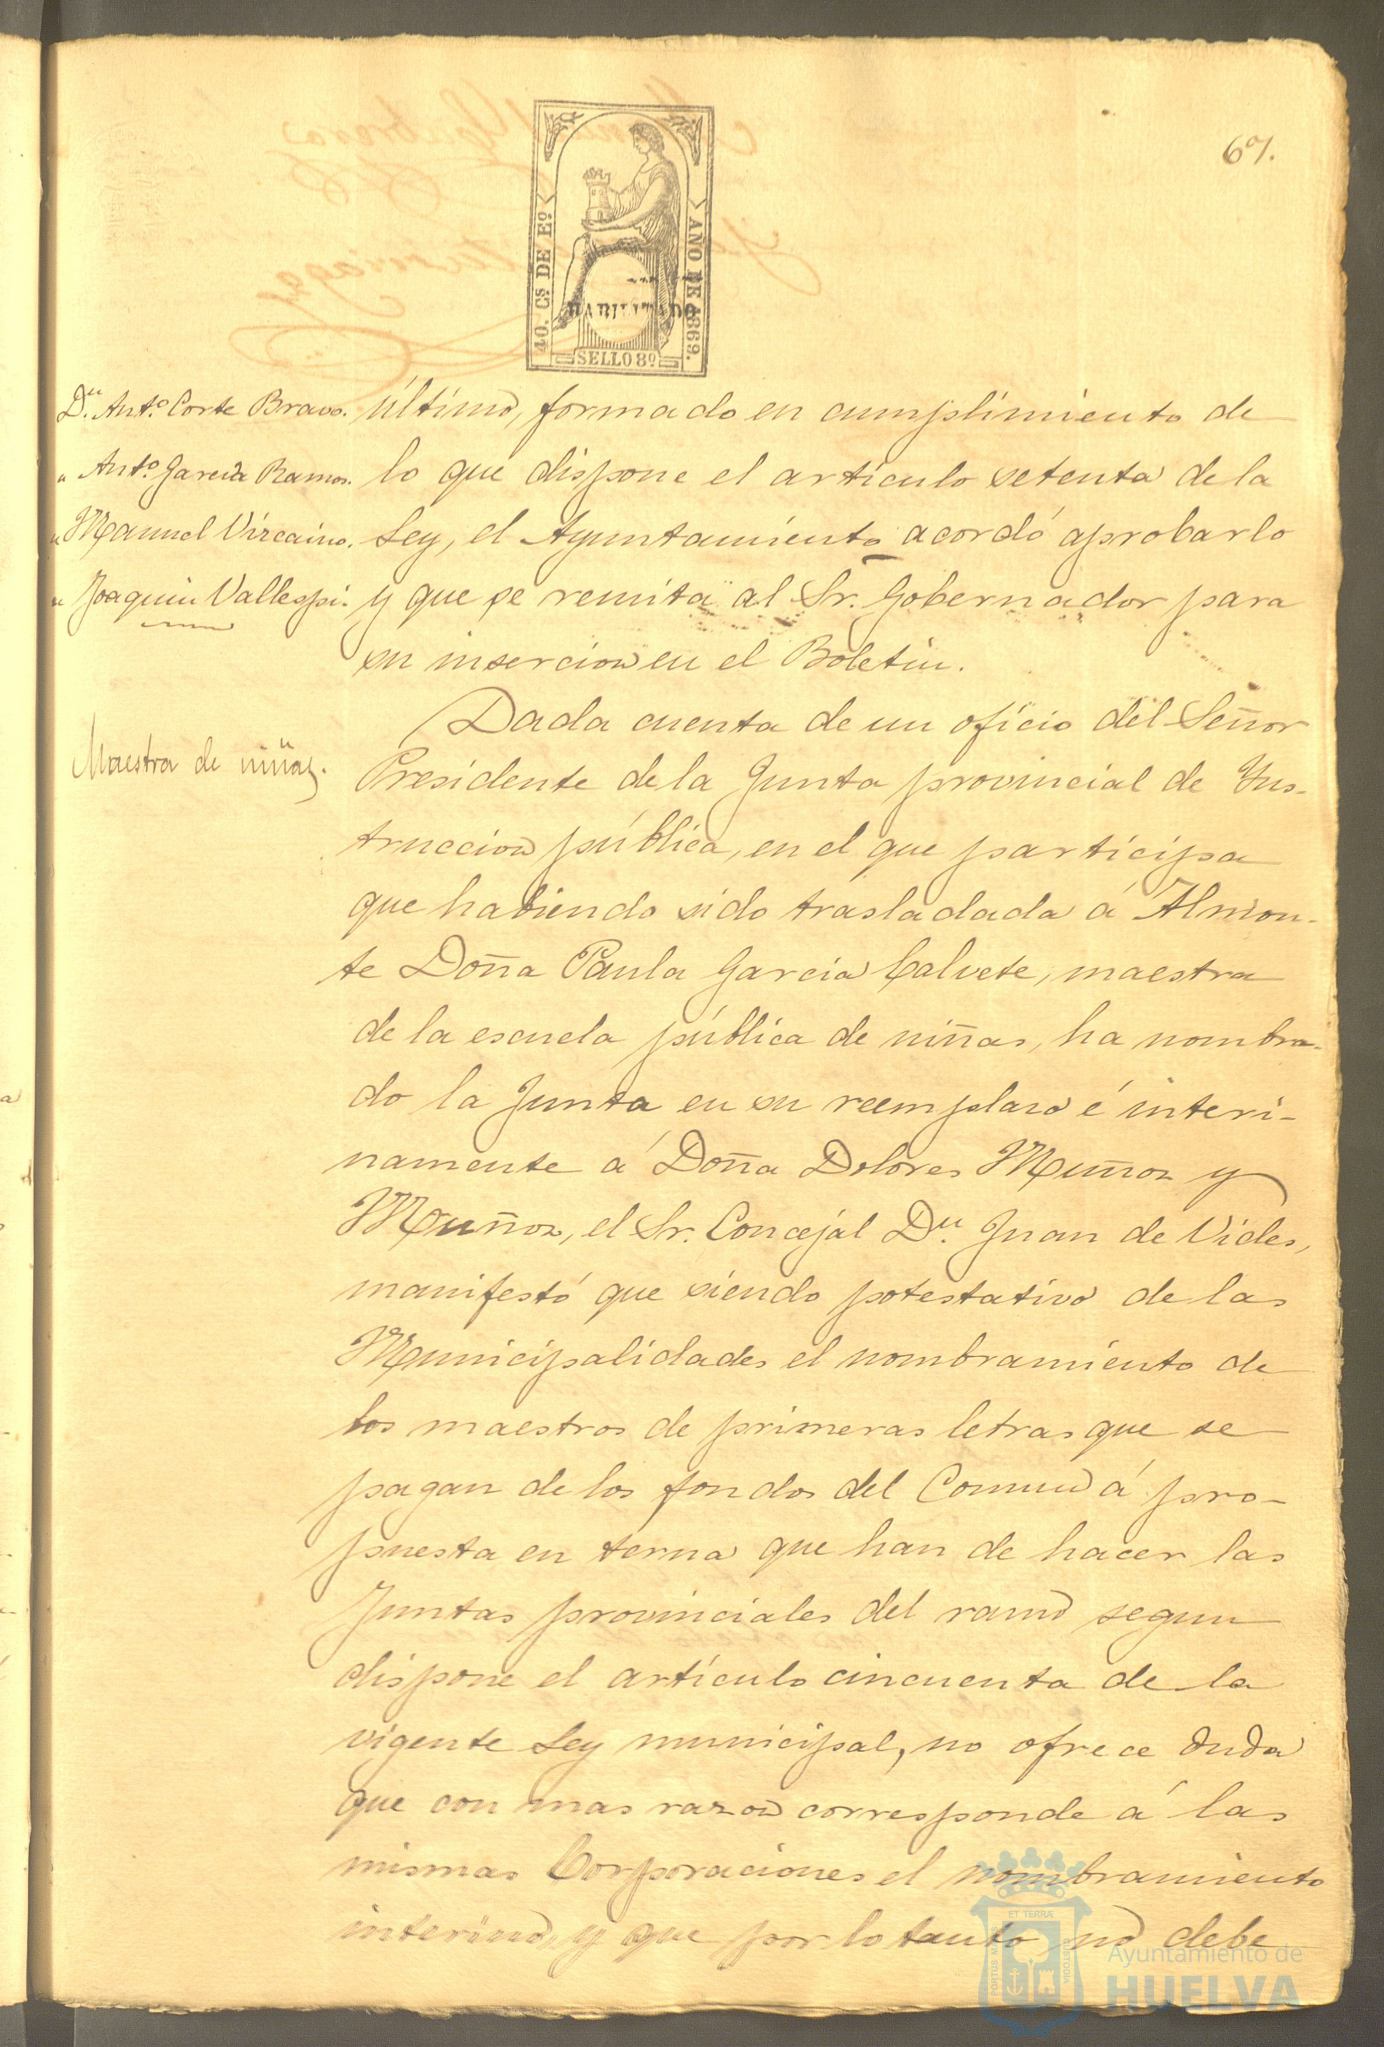 67.
40. Cs DE Eo
AÑO DE 1869.
HABILITADO
SELLO 8º
Dn. Antº. Corte Bravo.
" Antº. Garcia Ramos.
" Manuel Vizcaino.
" Joaquin Vallespi.
último, formado en cumplimiento de
lo que dispone el artículo setenta de la
Ley, el Ayuntamiento acordó aprobarlo
y que se remita al Sr. Gobernador para
su insercion en el Boletin.
Maestra de niñas.
Dada cuenta de un oficio del Señor
Presidente de la Junta provincial de Ins-
truccion pública, en el que participa
que habiendo sido trasladada á Almon-
te Doña Paula Garcia Calvete, maestra
de la escuela pública de niñas, ha nombra-
do la Junta en su reemplazo é interi-
namente á Doña Dolores Muñoz y
Muñoz, el Sr. Concejal Dn. Juan de Vides,
manifestó que siendo potestativo de las
Municipalidades el nombramiento de
los maestros de primeras letras que se
pagan de los fondos del Comun á pro-
puesta en terna que han de hacer las
Juntas provinciales del ramo segun
dispone el artículo cincuenta de la
vigente Ley municipal, no ofrece duda
que con mas razon corresponde á las
mismas Corporaciones el nombramiento
interino, y que por lo tanto no debe
Ayuntamiento de
HUELVA